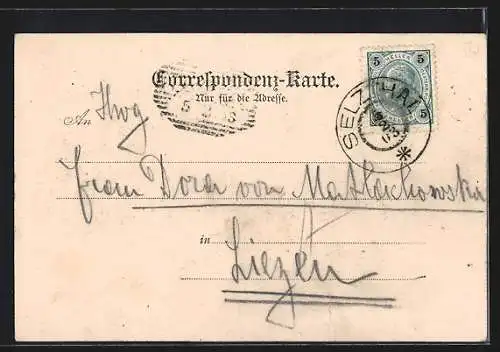 Correspondenz-Karte.
Nur für die Adresse.
5 HELLER 5
SELZTHAL
An
Frau Dora von Matlachowska
in
Liezen